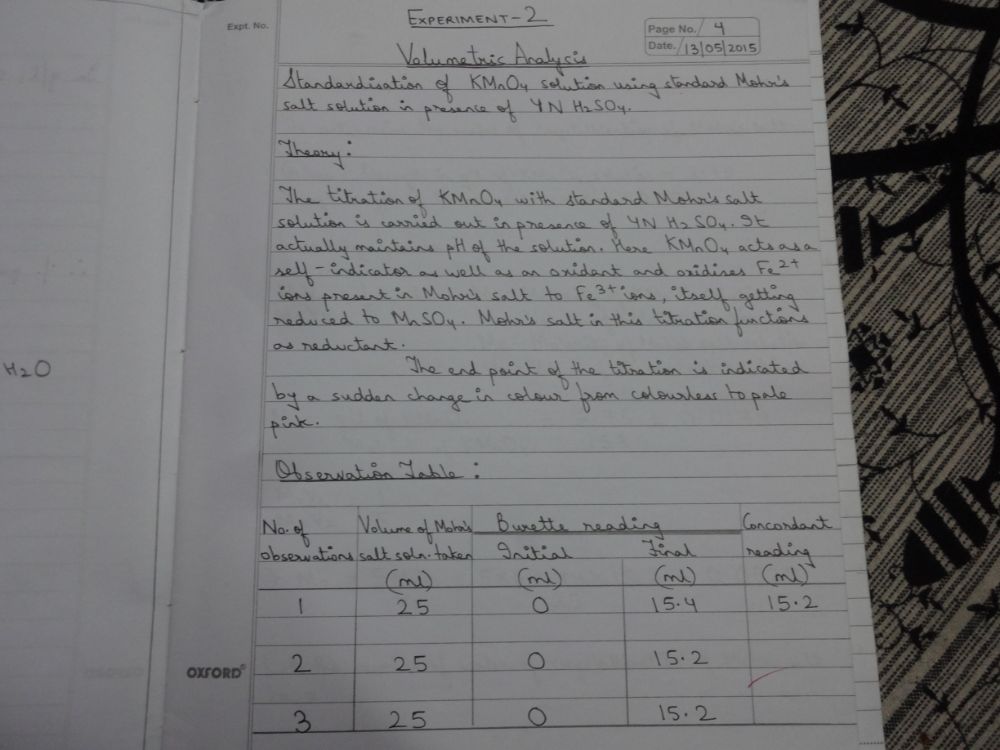 EXPERIMENT-2
Expt. No.
Page No. 4
Date. 13/05/2015
Volumetric Analysis
Standardisation of KMnO4 solution using standard Mohr's
salt solution in presence of 4N H2SO4.
Theory:
The titration of KMnO4 with standard Mohr's salt
solution is carried out in presence of 4N H2SO4. It
actually maintains pH of the solution. Here KMnO4 acts as a
self-indicator as well as an oxidant and oxidises Fe2+
ions present in Mohr's salt to Fe3+ ions, itself getting
reduced to MnSO4. Mohr's salt in this titration functions
as reductant.
H2O
The end point of the titration is indicated
by a sudden change in colour from colourless to pale
pink.
Observation Table:
No. of Volume of Mohr's Burette reading Concordant
observations salt soln. taken Initial Final reading
(ml) (ml) (ml) (ml)
1 25 0 15.4 15.2
2 25 0 15.2
OXFORD
3 25 0 15.2